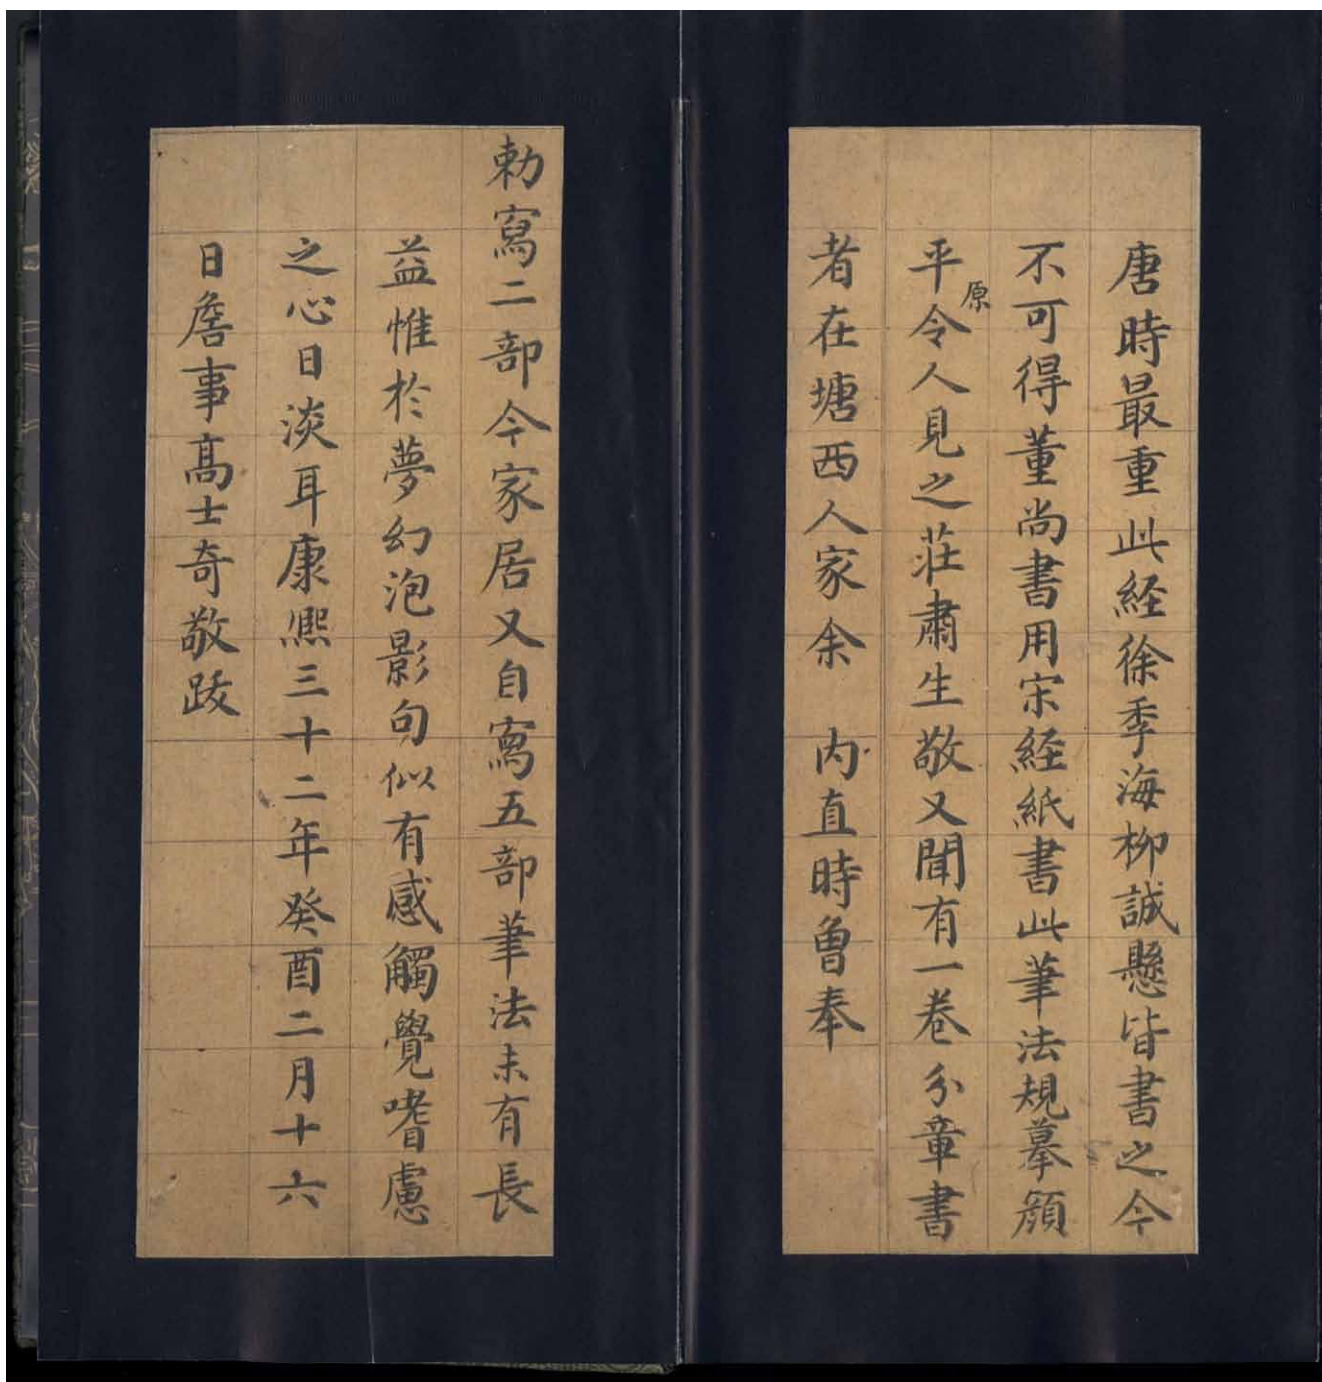 唐時最重此経徐季海柳誠懸皆書之今
不可得董尚書用宋経紙書此筆法規摹顔
平原令人見之莊肅生敬又聞有一卷分章書
者在塘西人家余 内直時曾奉
勅寫二部今家居又自寫五部筆法未有長
益惟於夢幻泡影句似有感觸覺嗜慮
之心日淡耳康熙三十二年癸酉二月十六
日詹事髙士奇敬跋